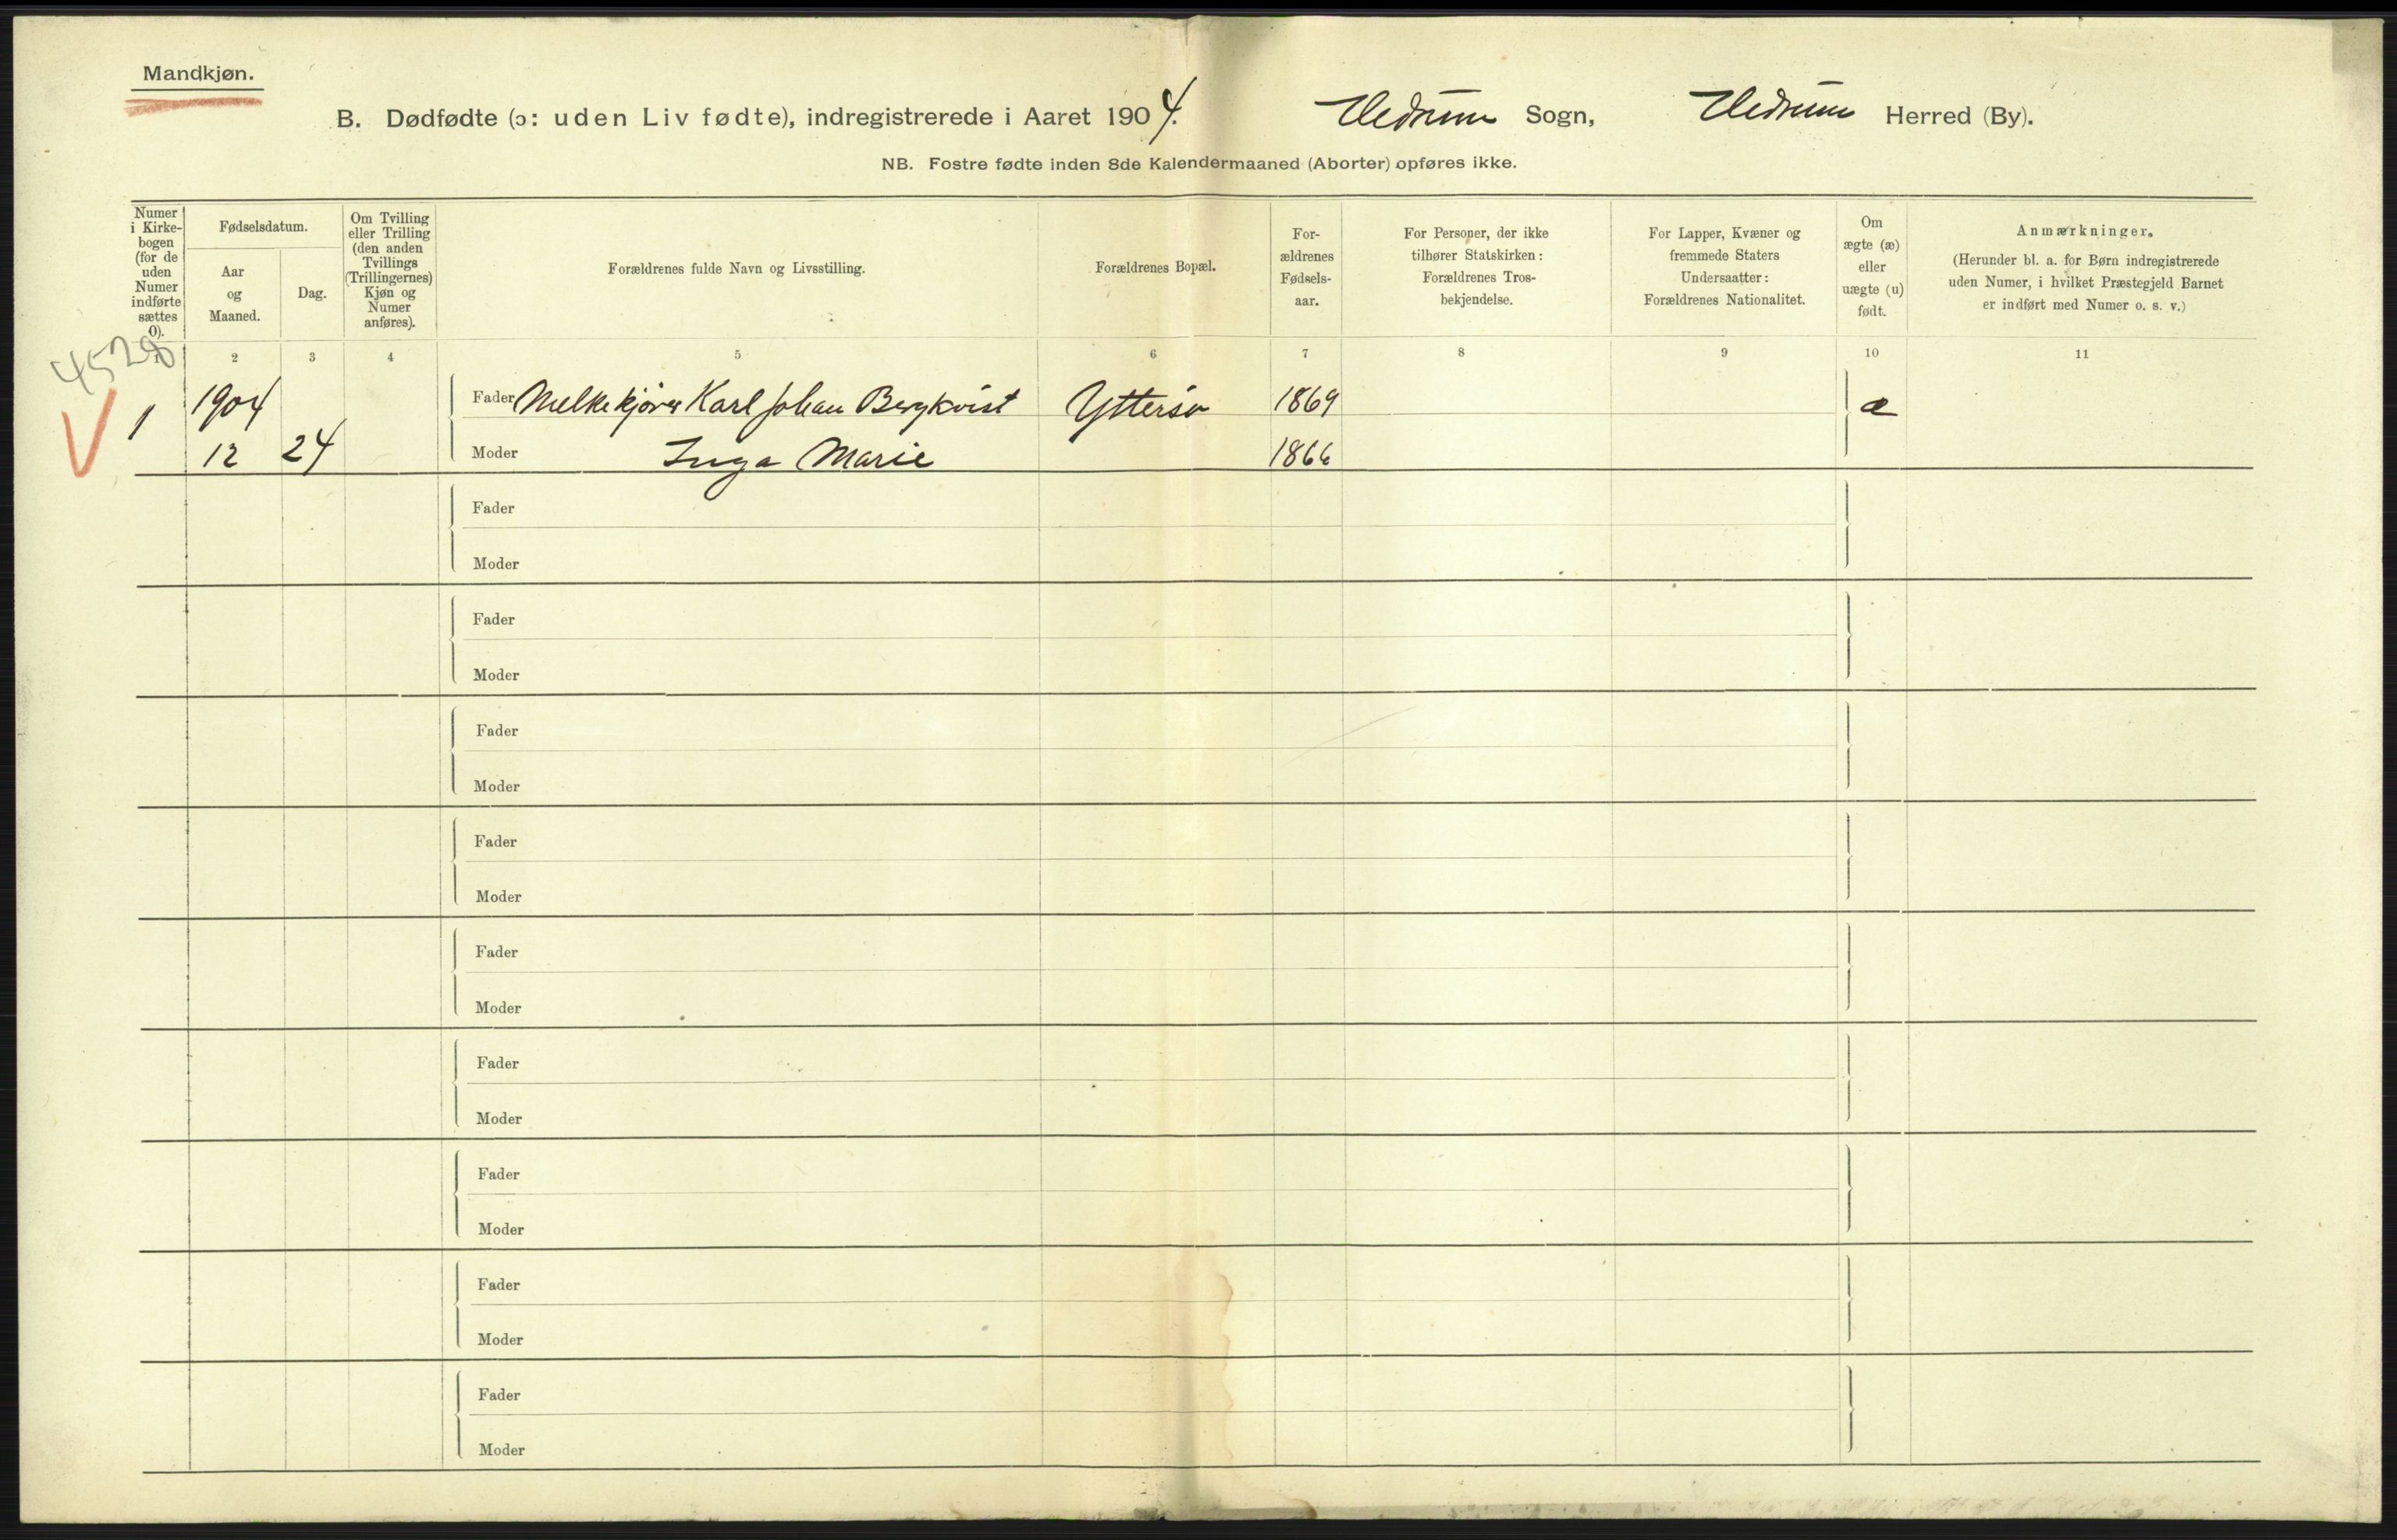 Mandkjøn.
B. Dødfødte (ɔ: uden Liv fødte), indregistrerede i Aaret 1904. Hedrum Sogn, Hedrum Herred (By).
NB. Fostre fødte inden 8de Kalendermaaned (Aborter) opføres ikke.
Numer
i Kirke-
bogen
(for de
uden
Numer
indførte
sættes
0).
Fødselsdatum.
Aar
og
Maaned.
Dag.
Om Tvilling
eller Trilling
(den anden
Tvillings
(Trillingernes)
Kjøn og
Numer
anføres).
Forældrenes fulde Navn og Livsstilling.
Forældrenes Bopæl.
For-
ældrenes
Fødsels-
aar.
For Personer, der ikke
tilhører Statskirken:
Forældrenes Tros-
bekjendelse.
For Lapper, Kvæner og
fremmede Staters
Undersaatter:
Forældrenes Nationalitet.
Om
ægte (æ)
eller
uægte (u)
født.
Anmærkninger.
(Herunder bl. a. for Børn indregistrerede
uden Numer, i hvilket Præstegjeld Barnet
er indført med Numer o. s. v.)
4528
1 2 3 4 5 6 7 8 9 10 11
V 1 1904 Fader Melkekjører Karl Johan Bergkvist Yttersø 1869 æ
12 24 Moder Inga Marie 1866
Fader
Moder
Fader
Moder
Fader
Moder
Fader
Moder
Fader
Moder
Fader
Moder
Fader
Moder
Fader
Moder
Fader
Moder